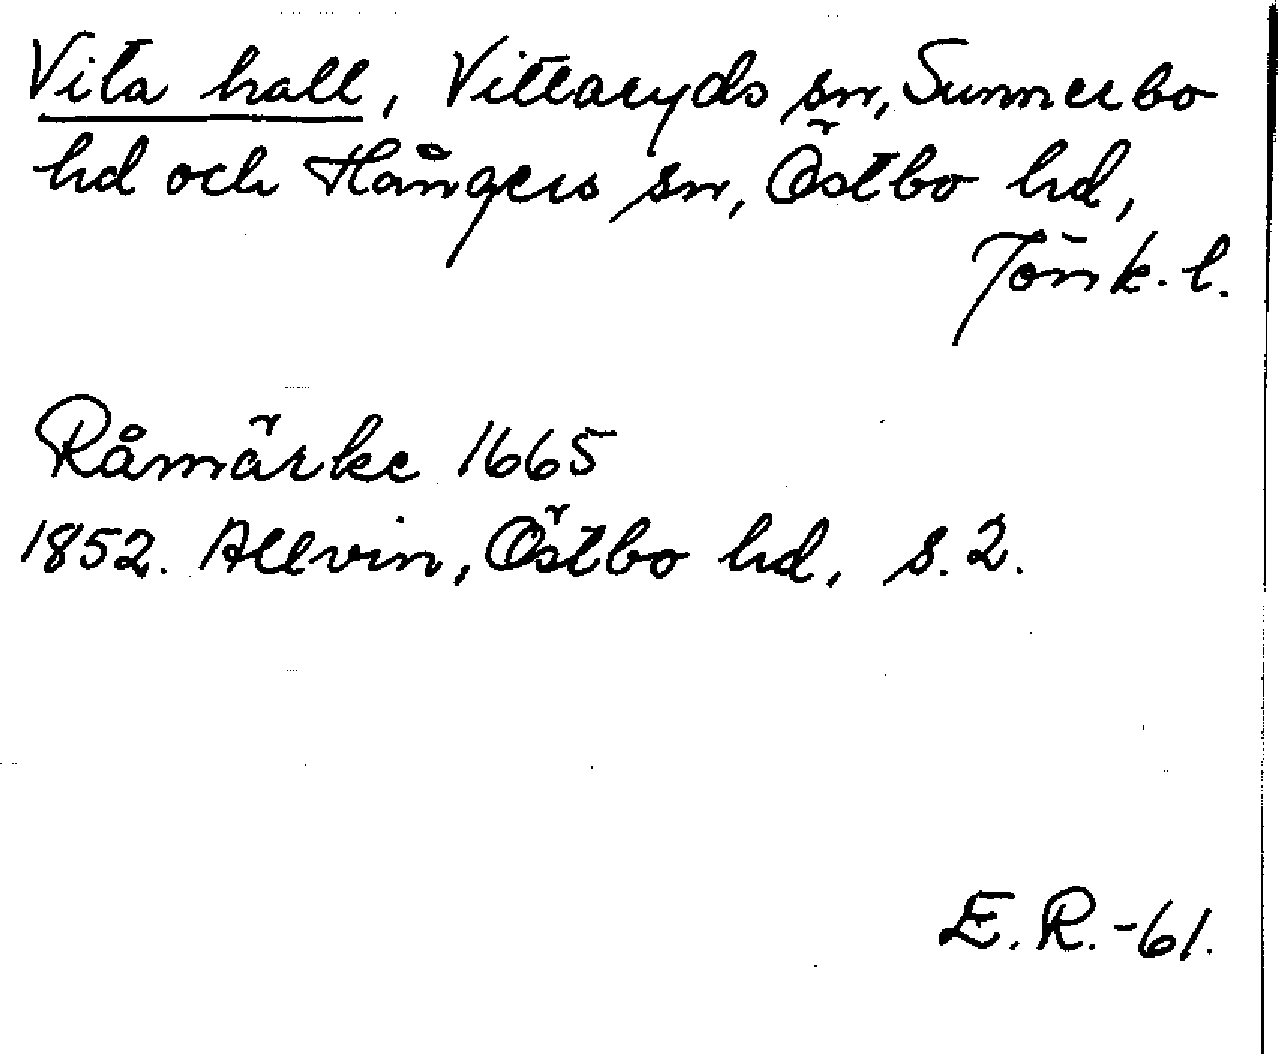 Vita hall, Vittaryds sn, Sunnerbo
hd och Hångers sn, Östbo hd,
Jönk. l.
Råmärke 1665
1852. Allvin, Östbo hd, s. 2.
E. R. -61.